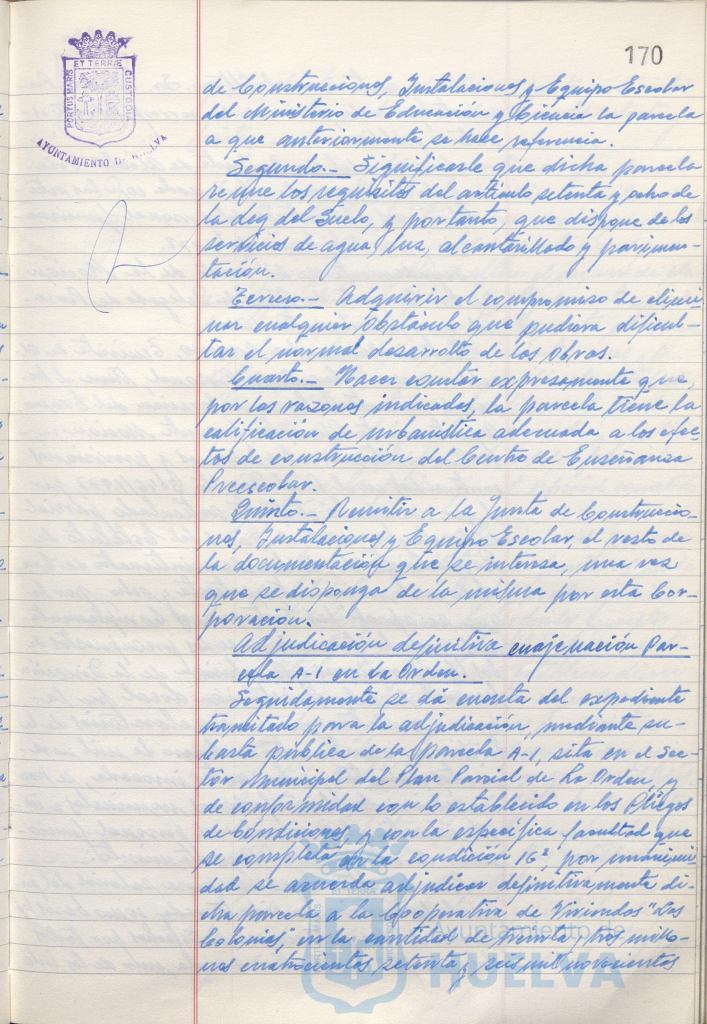 170
PORTUS MARIS
ET TERRÆ
CUSTODIA
AYUNTAMIENTO DE HUELVA
de Construcciones, Instalaciones y Equipo Escolar
del Ministerio de Educación y Ciencia la parcela
a que anteriormente se hace referencia.
Segundo.- Significarle que dicha parcela
reune los requisitos del artículo setenta y ocho de
la Ley del Suelo, y por tanto, que dispone de los
servicios de agua, luz, alcantarillado y pavimen-
tación.
Tercero.- Adquirir el compromiso de elimi-
nar cualquier obstáculo que pudiera dificul-
tar el normal desarrollo de las Obras.
Cuarto.- Hacer constar expresamente que,
por las razones indicadas, la parcela tiene la
calificación de urbanística adecuada a los efec-
tos de construcción del Centro de Enseñanza
Preescolar.
Quinto.- Remitir a la Junta de Construccio-
nes, Instalaciones y Equipo Escolar, el resto de
la documentación que se interesa, una vez
que se disponga de la misma por esta Cor-
poración.
Adjudicación definitiva enajenación Par-
cela A-1 en La Orden.
Seguidamente se dá cuenta del expediente
tramitado para la adjudicación, mediante su-
basta pública de la parcela A-1, sita en el Sec-
tor Municipal del Plan Parcial de La Orden, y
de conformidad con lo establecido en los Pliegos
de Condiciones, y con la específica facultad que
se completa en la condición 16ª, por unanimi-
dad se acuerda adjudicar definitivamente di-
cha parcela a la Cooperativa de Viviendas "Las
Colonias", en la cantidad de treinta y tres millo-
nes cuatrocientas setenta y seis mil novecientas
Ayuntamiento de
HUELVA